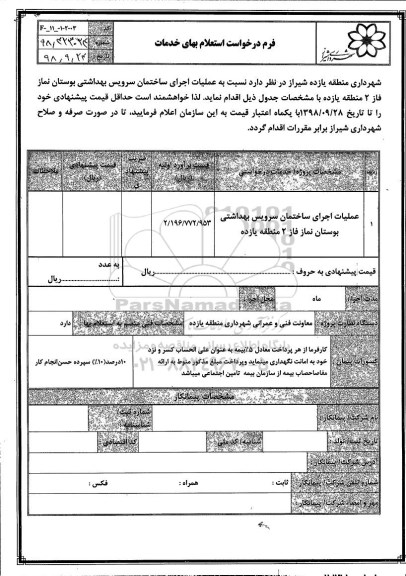 فرم درخواست استعلام بهای خدمات
کد F-۱۱-۰۱-۲۰۰۳
۹۸/۹/۲۴
شهرداری منطقه یازده شیراز در نظر دارد نسبت به عملیات اجرای ساختمان سرویس بهداشتی بوستان نماز
فاز ۲ منطقه یازده با مشخصات جدول ذیل اقدام نماید. لذا خواهشمند است حداقل قیمت پیشنهادی خود
را تا تاریخ ۱۳۹۸/۰۹/۲۸با یکماه اعتبار قیمت به این سازمان اعلام فرمایید، تا در صورت صرفه و صلاح
شهرداری شیراز برابر مقررات اقدام گردد.
مشخصات پروژه/ خدمات درخواستی
قیمت برآورد اولیه (ریال)
قیمت پیشنهادی (ریال)
ملاحظات
۱
عملیات اجرای ساختمان سرویس بهداشتی
بوستان نماز فاز ۲ منطقه یازده
۲/۱۹۶/۷۷۲/۹۵۳
قیمت پیشنهادی به حروف : ریال
به عدد
: ریال
مدت اجرا: ماه
محل اجرا:
دستگاه نظارت پروژه: معاونت فنی و عمرانی شهرداری منطقه یازده
مشخصات فنی منضم به استعلام بها: دارد
کسورات پیمان:
کارفرما از هر پرداخت معادل ۵٪بیمه به عنوان علی الحساب کسر و نزد
خود به امانت نگهداری مینماید وپرداخت مبلغ مذکور منوط به ارائه
مفاصاحساب بیمه از سازمان بیمه تامین اجتماعی میباشد
۱۰درصد(۱۰٪) سپرده حسن‌انجام کار
مشخصات پیمانکار
نام شرکت/ پیمانکار:
شماره ثبت/
شناسنامه:
تاریخ ثبت/ تولد:
شناسه/ کد ملی:
کد اقتصادی:
آدرس شرکت/ پیمانکار:
شماره تلفن شرکت/ پیمانکار:
ثابت :
همراه :
فکس :
مهر و امضاء شرکت/ پیمانکار:
ParsNamadData